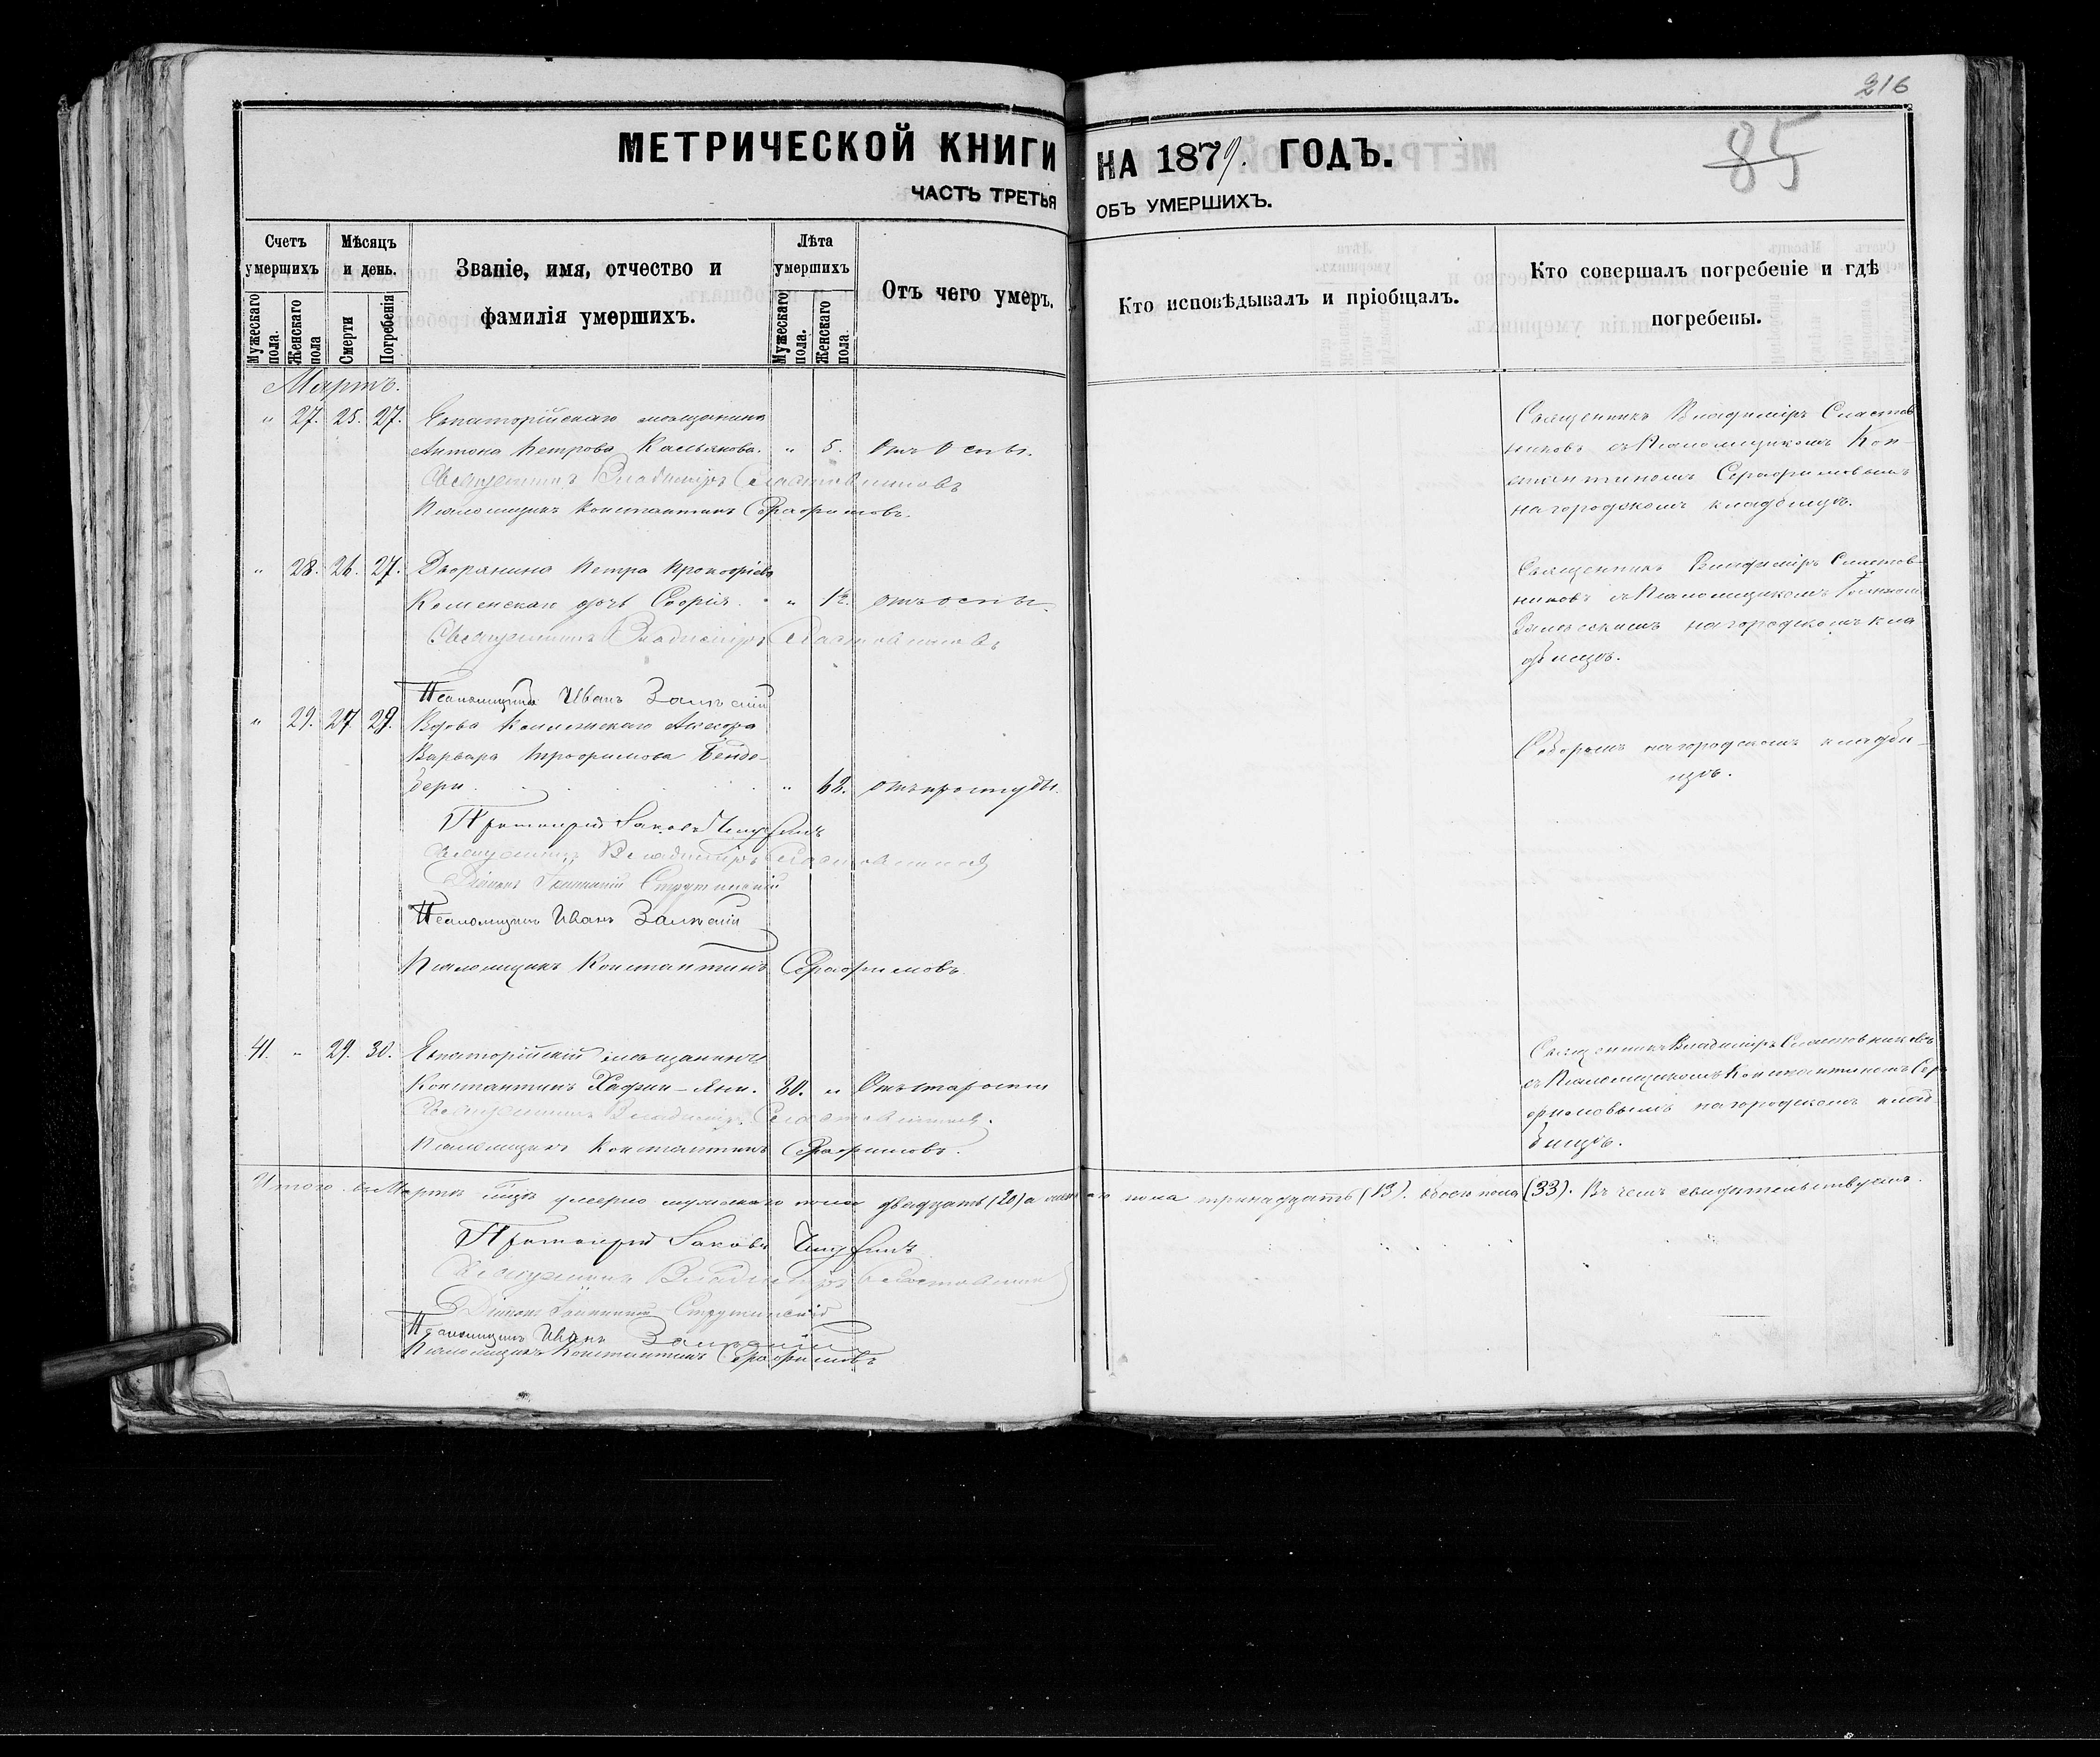 216
85
МЕТРИЧЕСКОЙ КНИГИ НА 1879. ГОДЪ.
ЧАСТЬ ТРЕТЬЯ ОБЪ УМЕРШИХЪ.
Счетъ умершихъ
Мужескаго пола.
Женскаго пола
Мѣсяцъ и день.
Смерти
Погребенія
Званіе, имя, отчество и
фамилія умершихъ.
Лѣта умершихъ
Мужескаго пола.
Женскаго пола.
Отъ чего умеръ.
Кто исповѣдывалъ и пріобщалъ.
Кто совершалъ погребеніе и гдѣ
погребены.
Мартъ.
" 27. 25. 27. Евпаторійскаго мѣщанина
Антона Петрова " 5. Отъ Оспы.
Священникъ Владиміръ Сластовниковъ
Псаломщикъ Константинъ Серафимовъ.
Священникъ Владиміръ Сластов
никовъ съ Псаломщикомъ Кон-
стантиномъ Серафимовымъ
на городскомъ кладбищѣ.
" 28. 26. 27. Дворянина Петра Прокофіева
дочь Софія. " отъ оспы.
Священникъ Владиміръ Сластовниковъ
Псаломщикъ Иванъ Залѣскій
Священникъ Владиміръ Сластов-
никовъ съ Псаломщикомъ
Залѣскимъ на городскомъ кла
дбищѣ.
" 29. 27 29. Вдова
Варвара Трофимова Бенде-
бери " 62. отъ простуды.
Протоіерей Іаковъ
Священникъ Владиміръ Сластовниковъ
Діаконъ Струтинскій
Псаломщикъ Иванъ Залѣскій
Псаломщикъ Константинъ Серафимовъ.
Соборомъ на городскомъ кладби-
щѣ.
41. " 29. 30. Евпаторійскій мѣщанинъ
Константинъ Хаджи-Яни. 80. " Отъ старости
Священникъ Владиміръ Сластовниковъ.
Псаломщикъ Константинъ Серафимовъ.
Священникъ Владиміръ Сластовниковъ
съ Псаломщикомъ Константиномъ Сера
фимовымъ на городскомъ клад
бищѣ.
Итого въ Мартѣ мцѣ умерло мужскаго пола двадцать (20) а женскаго пола тринадцать (13). обоего пола (33). Въ чемъ свидѣтельствуемъ.
Протоіерей Іаковъ
Священникъ Владиміръ Сластовниковъ
Діаконъ Струтинскій
Псаломщикъ Иванъ Залѣскій
Псаломщикъ Константинъ Серафимовъ